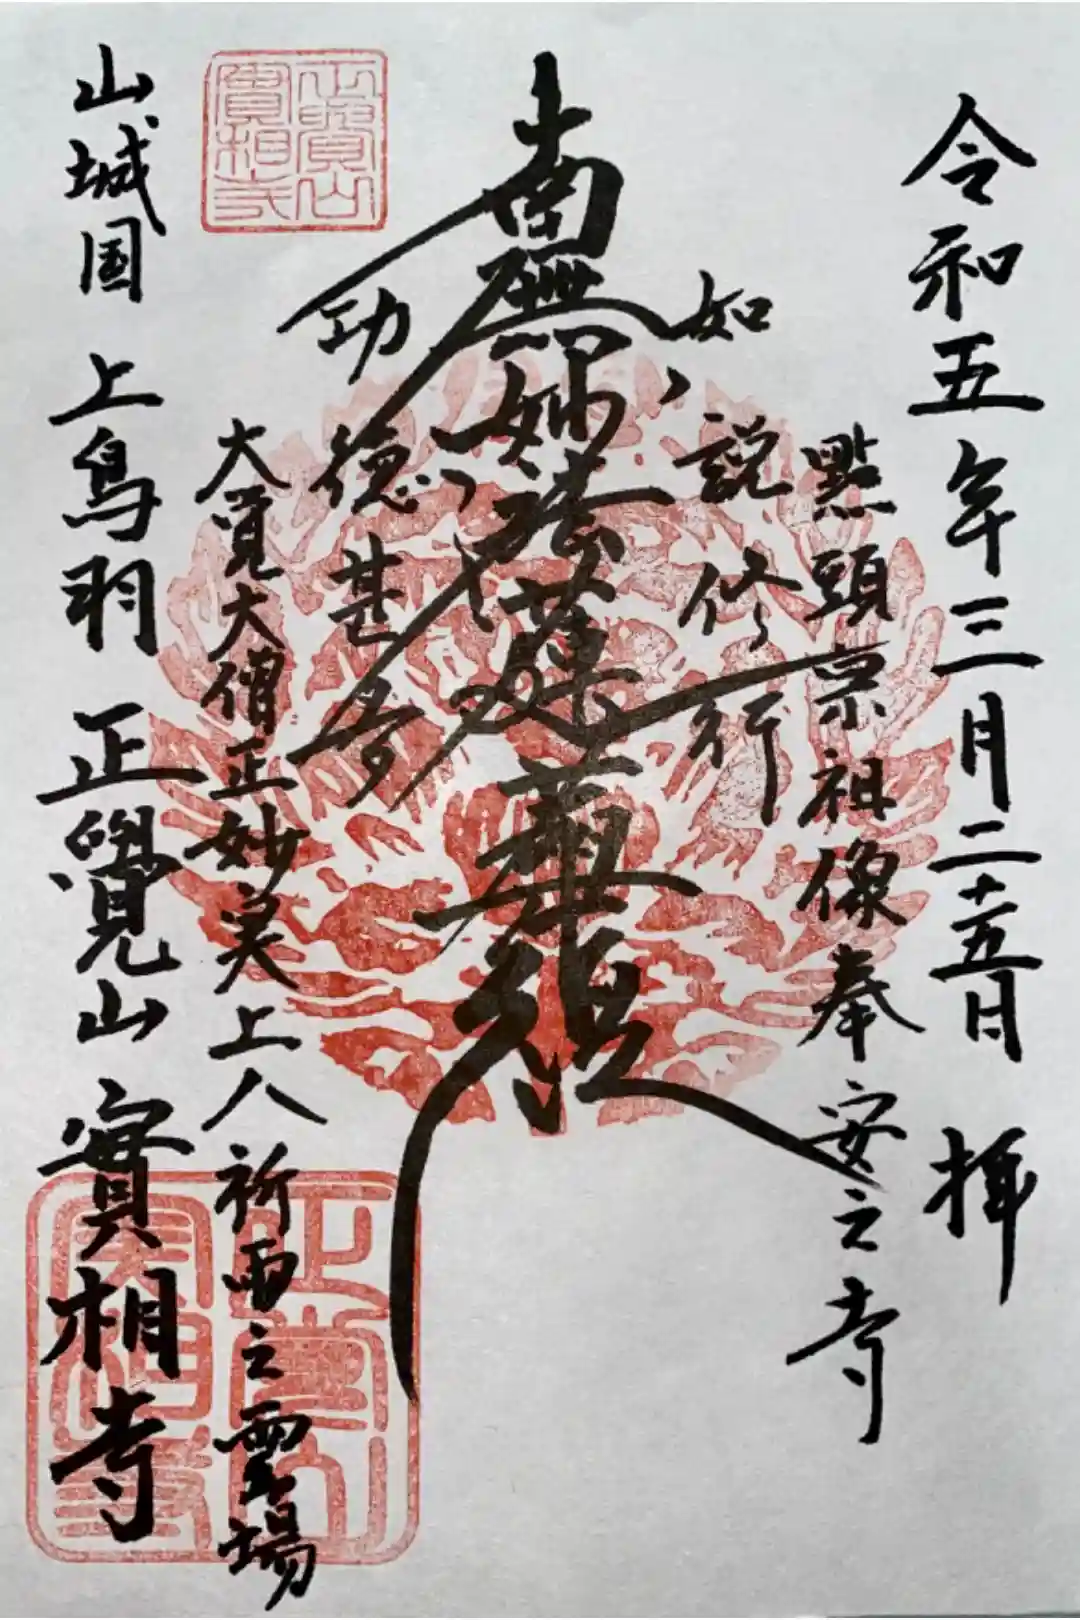 令和五年三月二十五日 拝
點頭宗祖像奉安之寺
如説修行
南無妙法蓮華経
功徳甚多
大覚大僧正妙実上人祈雨之霊場
山城国 上鳥羽 正覺山 實相寺
正覺山
實相寺
正覺山
実相寺